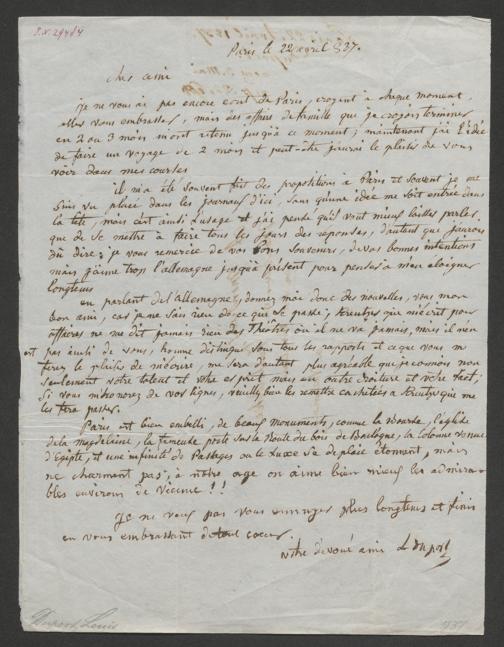 I.N. 29484
Paris le 22 avril 837.
cher ami
Je ne vous ai pas encore ecrit de Paris, croyent à chaque moment
allez vous embrasser, mais des affaires de famille que je croyois terminer
en 2 ou 3 mois m'ont retenu jusqu'à ce moment; maintenant j'ai l'idée
de faire un voyage de 2 mois et peut-être j'aurai le plaisir de vous
voir dans mes courses
il m'a été souvent fait des propositions à Paris et souvent je me
suis vu placé dans les journaux d'ici, sans qu'une idée me soit entrée dans
la tête, mais c'est ainsi l'usage et j'ai pensé qu'il vaut mieux laisser parler,
que de se mettre à faire tous les jours des reponses, d'autant que j'aurois
dû dire; je vous remercie de vos bons souvenirs, de vos bonnes intentions
mais j'aime trop l'allemagne jusqu'à présent pour penser à m'en eloigner
longtems
en parlant de l'Allemagne, donnez moi donc des nouvelles, vous mon
bon ami, car je ne sais rien de ce qui se passe; qui m'ecrit pour
affaires ne me dit jamais rien des Théâtres où il ne va jamais, mais il n'en
est pas ainsi de vous, homme distingué sous tous les rapports et ce que vous me
ferez le plaisir de m'ecrire, me sera d'autant plus agréable que je connois non
seulement votre talent et votre esprit mais en outre droiture et votre tact;
Si vous m'honorez de vos lignes, veuillez bien les remettre cachetées à qui me
les fera passer.
Paris est bien embelli, de beaux monuments, comme la Bourse, l'église
de la magdelaine, la fameuse porte sur la Route du bois de Boulogne, la Colonne venue
d'Egipte, et une infinité de Passages ou le Luxe se deploie etonnent, mais
ne charment pas; à notre age on aime bien mieux les admira-
bles environs de vienne !!
Je ne veux pas vous ennuyer plus longtems et finis
en vous embrassant de tout coeur.
votre dévoué ami L Duport
Duport, Louis
1837